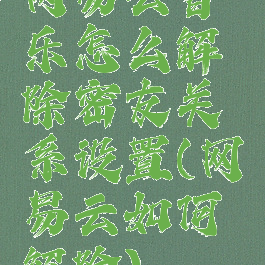 网易云音
乐怎么解
除密友关
系设置(网
易云如何
解除)